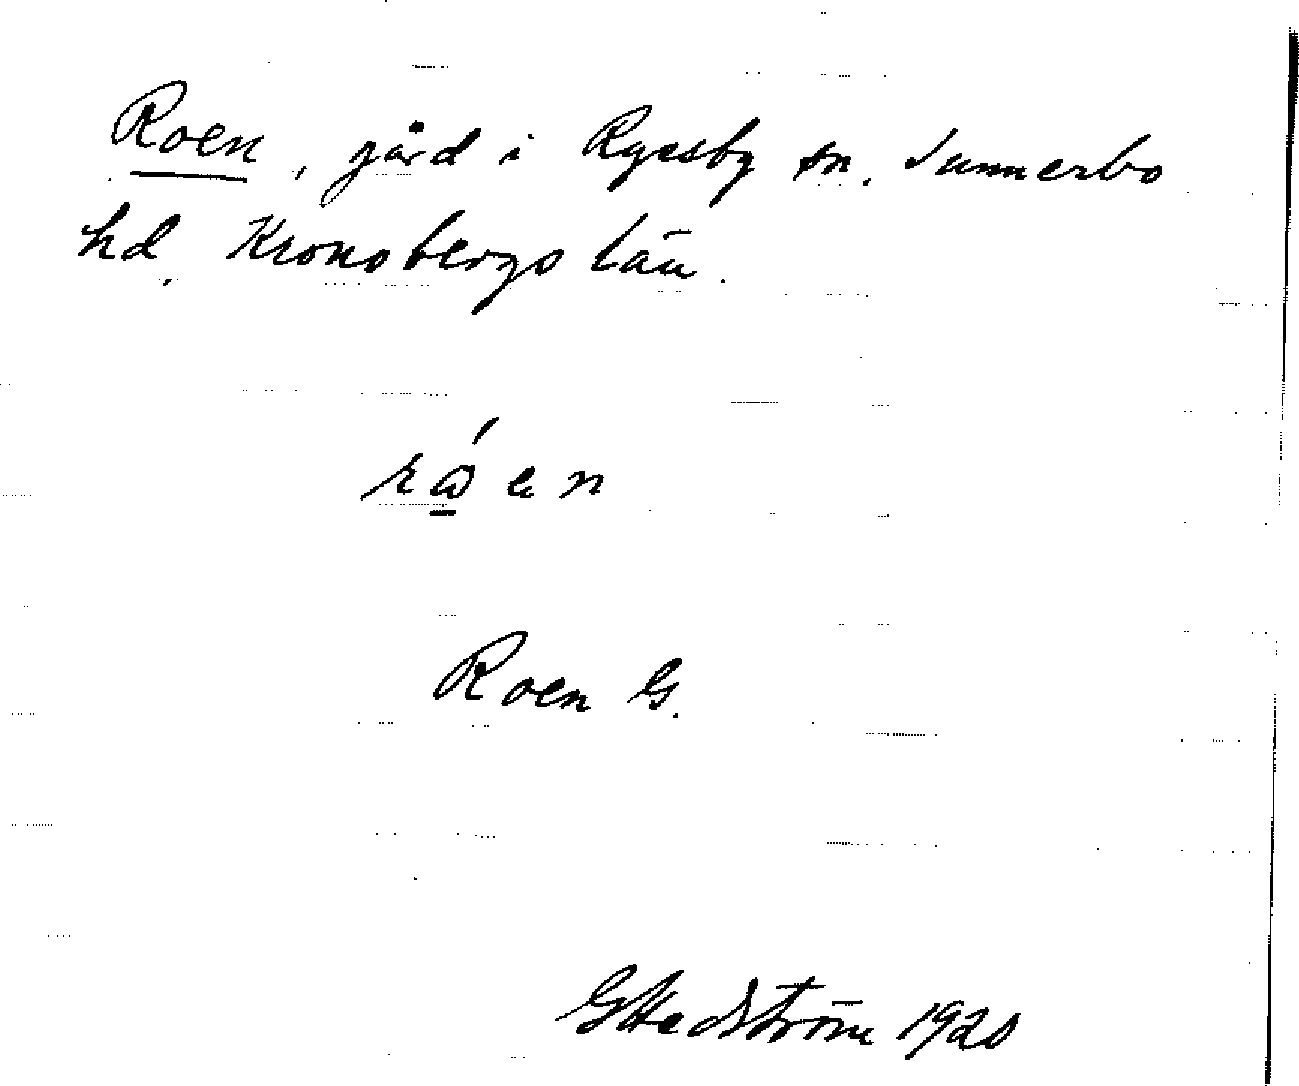 Roen, gård i Ryssby sn, Sunnerbo
hd, Kronobergs län.
Roen G.
G Hedström 1920